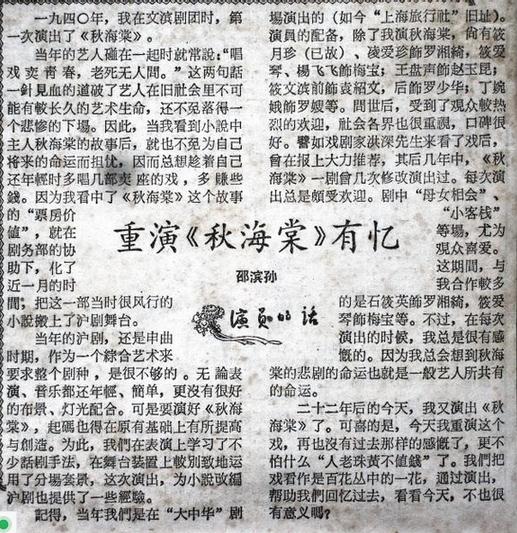 重演《秋海棠》有忆
邵滨孙
演员的话
一九四〇年，我在文滨剧团时，第
一次演出了《秋海棠》。
当年的艺人碰在一起时就常說：“唱
戏卖青春，老死无人問。”这两句話
一針見血的道破了艺人在旧社会里不可
能有較长久的艺术生命，还不免落得一
个悲慘的下場。因此，当我看到小說中
主人秋海棠的故事后，就也不免为自己
将来的命运而担忧，因而总想趁着自己
还年輕时多唱几部卖座的戏，多賺些
錢。因为我看中了《秋海棠》这个故事
的“票房价
值”，就在
剧务部的协
助下，化了
近一月的时
間；把这一部当时很风行的
小說搬上了沪剧舞台。
当年的沪剧，还是申曲
时期，作为一个綜合艺术来
要求整个剧种，是很不够的。无論表
演、音乐都还年輕、簡单，更沒有很好
的布景、灯光配合。可是要演好《秋海
棠》，起碼也得在原有基础上有所提高
与創造。为此，我們在表演上学习了不
少話剧手法，在舞台装置上較別致地运
用了分場套景，这次演出，为小說改編
沪剧也提供了一些經驗。
記得，当年我們是在“大中华”剧
場演出的（如今“上海旅行社”旧址）。
演員的配备，除了我演秋海棠，尚有筱
月珍（已故）、凌爱珍飾罗湘綺，筱爱
琴、楊飞飞飾梅宝；王盘声飾赵玉昆；
筱文滨前飾袁紹文，后飾罗少华；丁婉
娥飾罗嫂等。問世后，受到了观众較热
烈的欢迎，社会各界也很重視，口碑很
好。譬如戏剧家洪深先生来看了戏后，
曾在报上大力推荐，其后几年中，《秋
海棠》一剧曾几次修改演出过。每次演
出总是頗受欢迎。剧中“母女相会”、
“小客栈”
等場，尤为
观众喜爱。
这期間，与
我合作較多
的是石筱英飾罗湘綺，筱爱
琴飾梅宝等。不过，在每次
演出的时候，我总是很有感
慨的。因为我总会想到秋海
棠的悲剧的命运也就是一般艺人所共有
的命运。
二十二年后的今天，我又演出《秋
海棠》了。可喜的是，今天我重演这个
戏，再也沒有过去那样的感慨了，更不
怕什么“人老珠黃不値錢”了。我們把
戏看作是百花丛中的一花，通过演出，
帮助我們回忆过去，看看今天，不也很
有意义嗎？